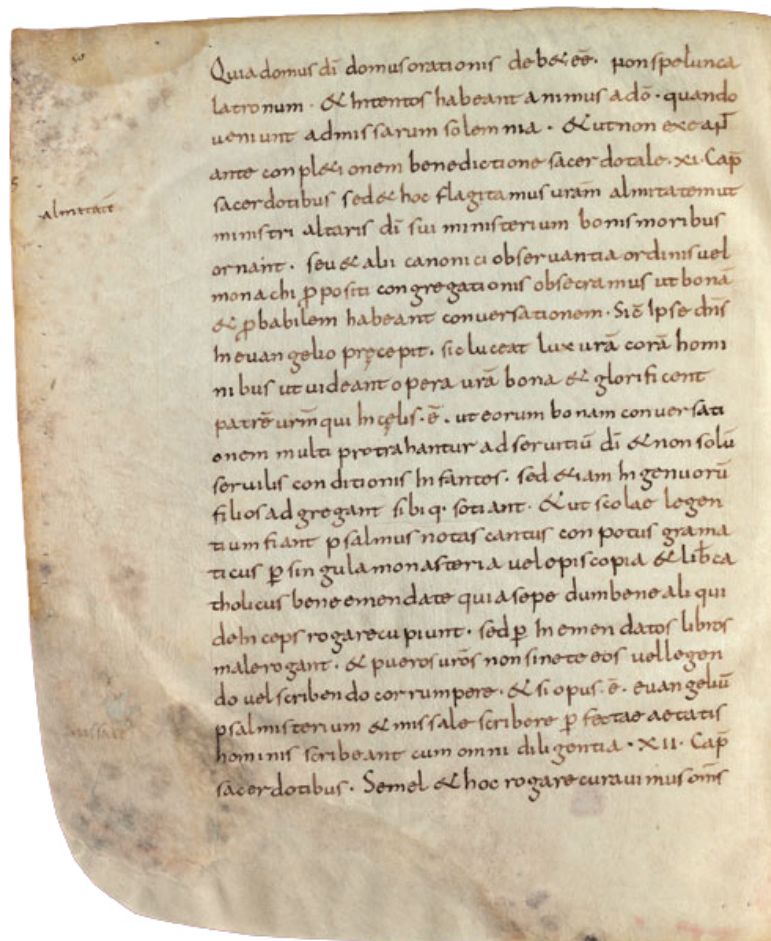 Quia domus dī domus orationis deber& eē · non spelunca
latronum · & Intentos habeant animus ad dō · quando
ueniunt ad missarum solemnia · & ut non exeaṅt
ante conpl&ionem benedictione sacerdotale · XI · Cap̄
almetatē
sacerdotibus sed & hoc flagitamus urām almitatem ut
ministri altaris dī sui ministerium bonis moribus
ornānt · seu & alii canonici obseruantia ordinis uel
monachi p̄positi congregationis obsecramus ut bonā
& p̄babilem habeant conuersationem · Sic Ipse dn̄s
In euangelio pręcepit · sic luceat lux urā corā homi
nibus ut uideant opera urā bona & glorificent
patrē urm̄ qui In cęlis · ē · ut eorum bonam conuersati
onem multi protrahantur ad seruitiū dī & non solū
seruilis conditionis Infantes · sed &iam Ingenuorū
filios adgregant sibiq · sotiant · & ut scolae legen
tium fiant psalmus notas cantus conpotus grama
ticus p̄ singula monasteria uel episcopia & lib̄ ca
tholicus bene emendate quia sepe dum bene ali qui
deInceps rogare cupiunt · sed p̄ Inemendatos libros
male rogant · & pueros urōs non sinete eos uel legen
do uel scribendo corrumpere · & si opus · ē · euangeliū
psalmisterium & missale scribere p̄fectae aetatis
hominis scribeant cum omni diligentia · XII · Cap̄
sacerdotibus · Semel & hoc rogare curauimus om̄s